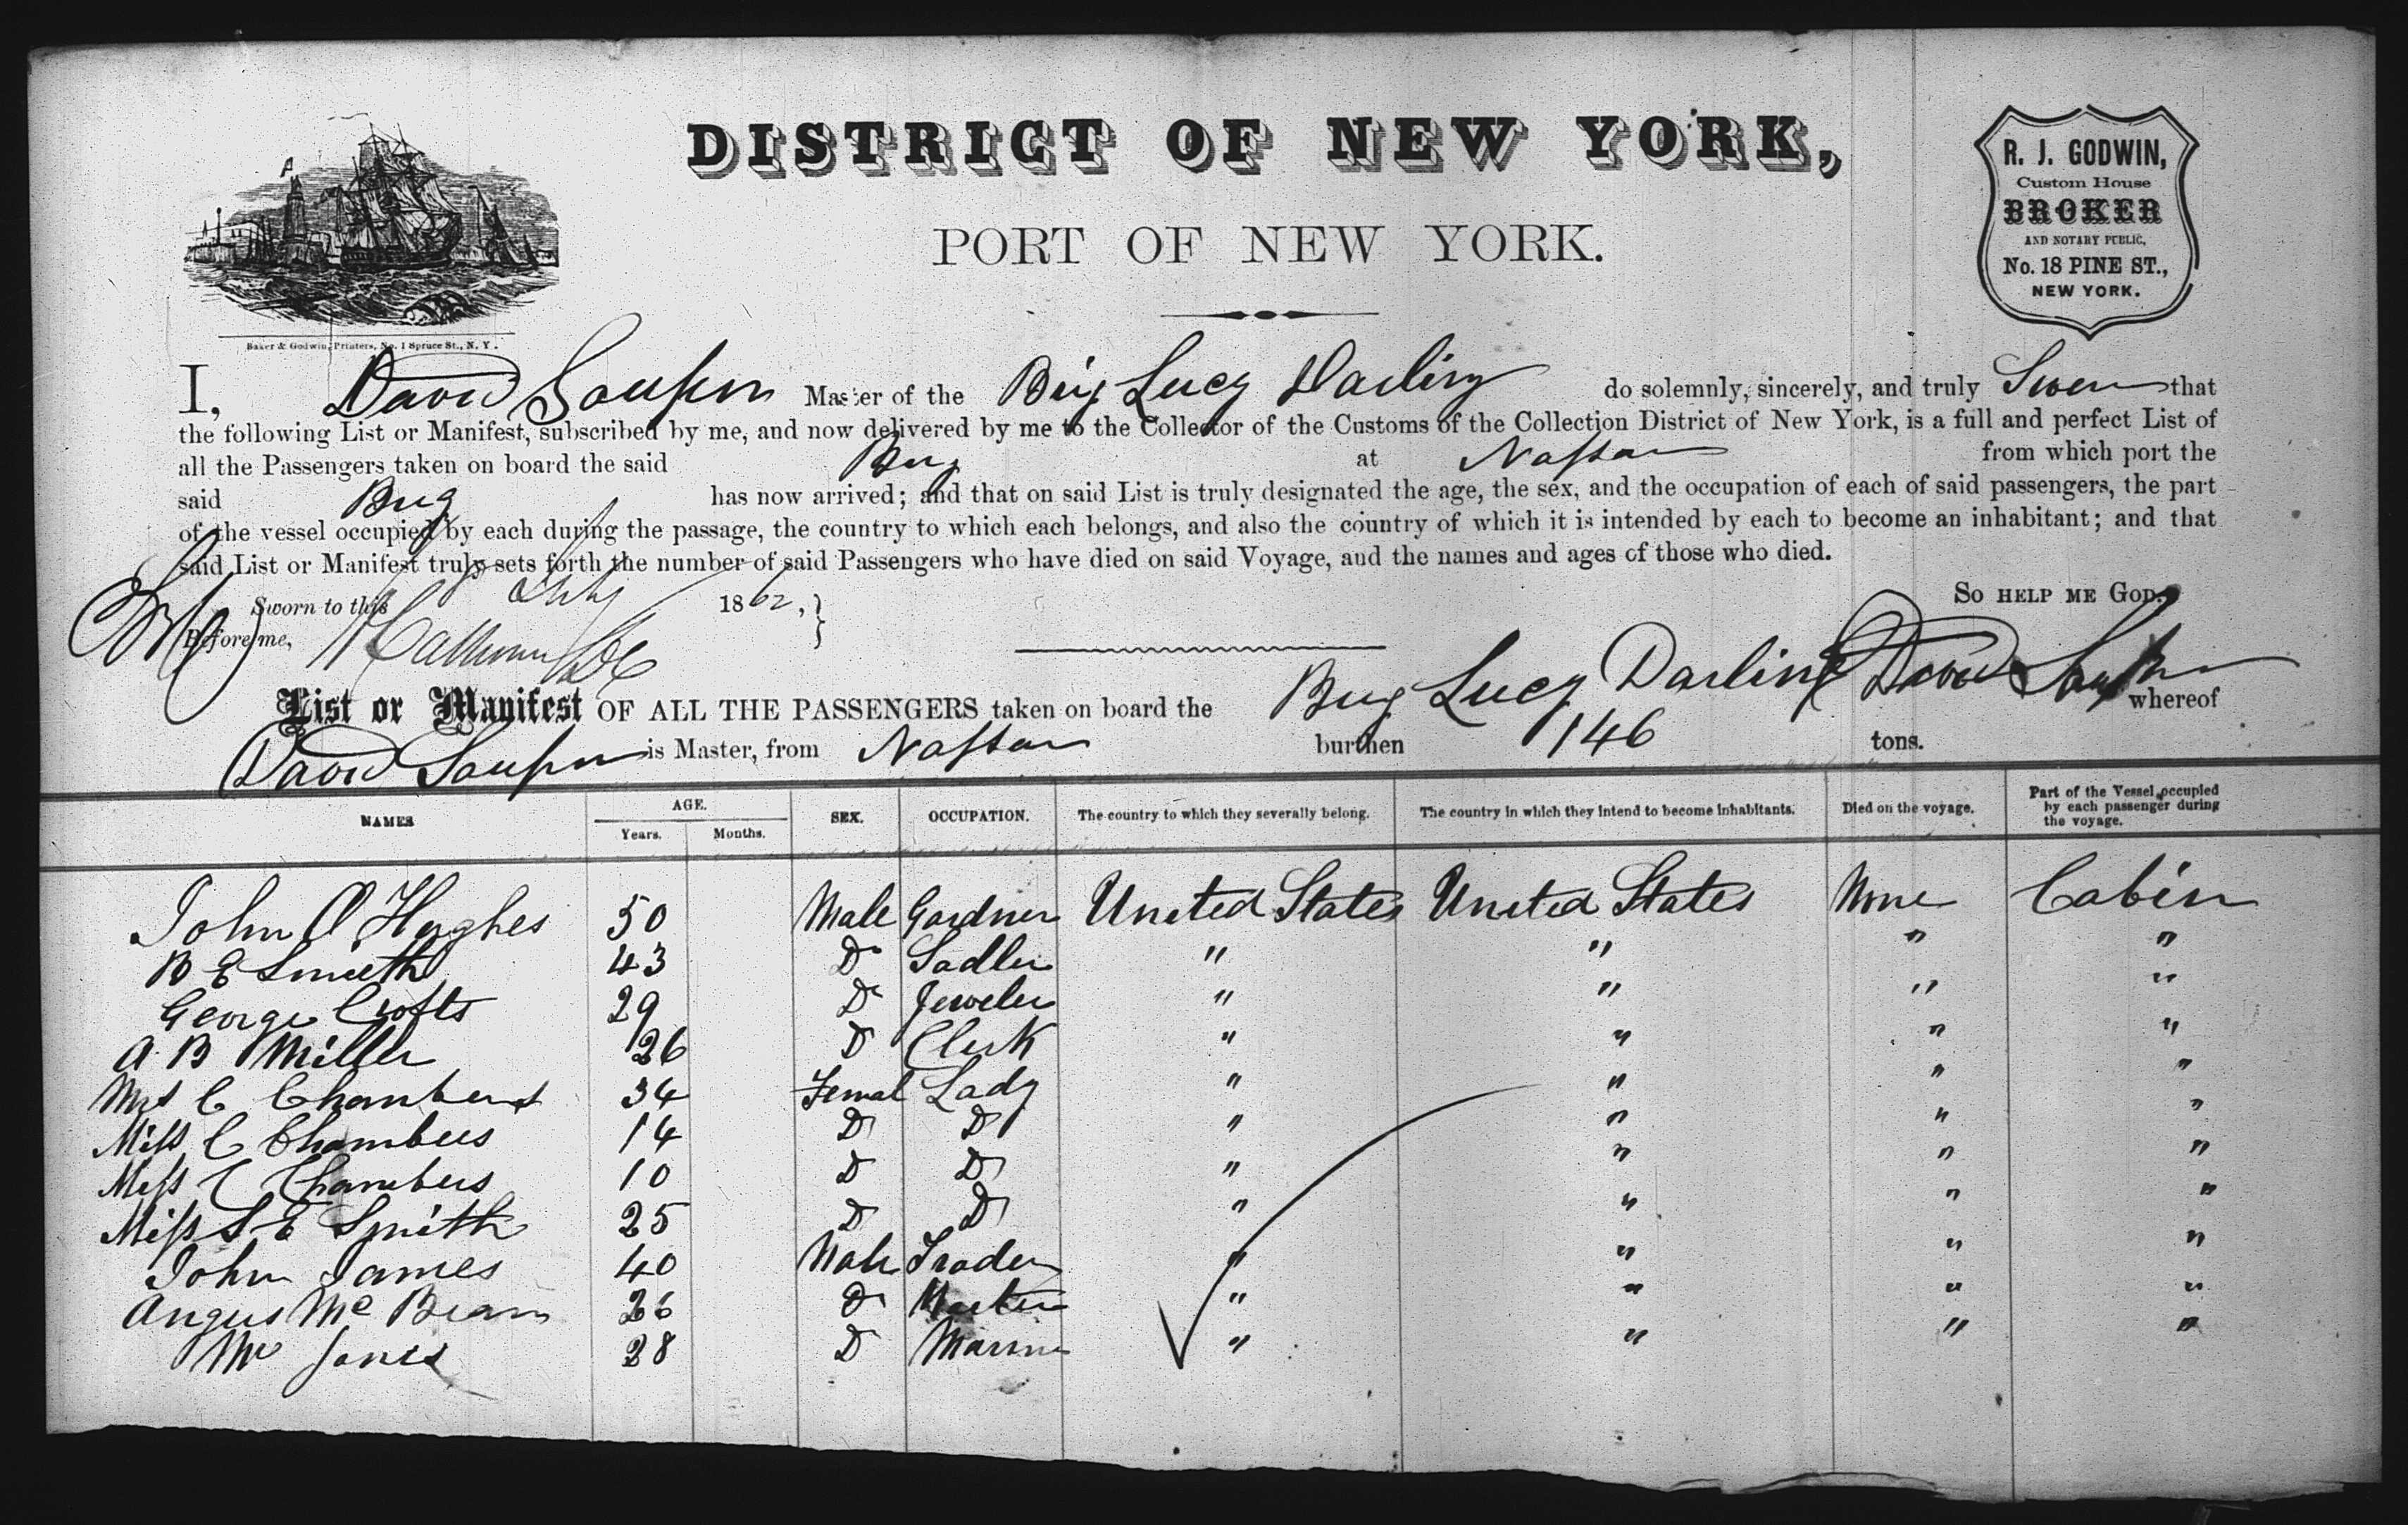 DISTRICT OF NEW YORK,
PORT OF NEW YORK.
R. J. GODWIN,
Custom House
BROKER
AND NOTARY PUBLIC,
No. 18 PINE ST.,
NEW YORK.
Baker & Godwin, Printers, No. 1 Spruce St., N. Y.
I, David Master of the Brig Lucy Darling do solemnly, sincerely, and truly Swear that
the following List or Manifest, subscribed by me, and now delivered by me to the Collector of the Customs of the Collection District of New York, is a full and perfect List of
all the Passengers taken on board the said Brig at Nassau from which port the
said Brig has now arrived; and that on said List is truly designated the age, the sex, and the occupation of each of said passengers, the part
of the vessel occupied by each during the passage, the country to which each belongs, and also the country of which it is intended by each to become an inhabitant; and that
said List or Manifest truly sets forth the number of said Passengers who have died on said Voyage, and the names and ages of those who died.
Sworn to this July 1862,
So HELP ME GOD.
Before me,
List or Manifest OF ALL THE PASSENGERS taken on board the Brig Lucy Darling David whereof
David is Master, from Nassau burthen 146 tons.
NAMES AGE. Years. Months. SEX. OCCUPATION. The country to which they severally belong. The country in which they intend to become inhabitants. Died on the voyage. Part of the Vessel occupied by each passenger during the voyage.
John O Hughes 50 Male Gardner United States United States None Cabin
B E Smith 43 D Sadler " " " "
George Crofts 29 D Jeweler " " " "
A. B Miller 26 D Clerk " " " "
Mrs C Chambers 34 Femal Lady " " " "
Miss C Chambers 14 D D " " " "
Miss C Chambers 10 D D " " " "
Miss S E Smith 25 D D " " " "
John James 40 Male Trader " " " "
Angus Mc Bean 26 D " " " "
Mc Jones 28 D Marine " " " "